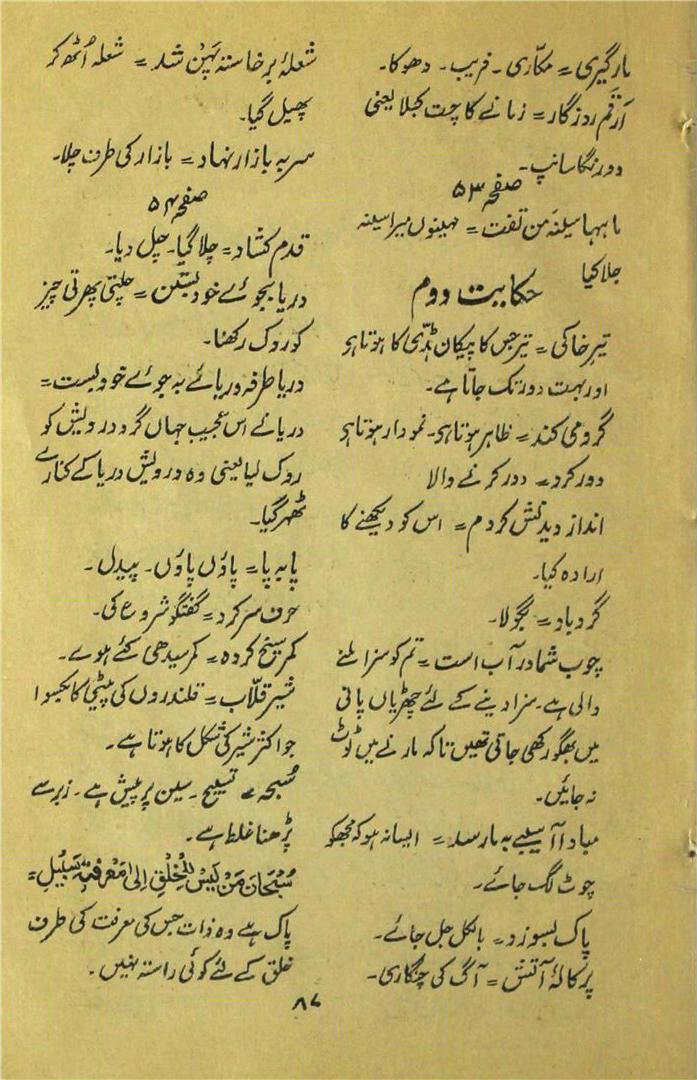 مارگیری = مکّاری ۔ فریب ۔ دھوکا۔
اَرْقَمِ روزگار = زمانے کا چت کبلا یعنی
دورنگا سانپ۔
صفحہ ۵۳
ماہہا سینۂ من تفت = مہینوں میرا سینہ
جلا کیا
حکایت دوم
تیرِ خاکی = تیر جس کا پیکان ہڈّی کا ہوتا ہی
اور بہت دور تک جاتا ہے۔
گرومی کند = ظاہر ہوتا ہی۔ نمودار ہوتا ہی
دورکرد = دور کرنے والا
انداز دیدنش کردم = اس کو دیکھنے کا
ارادہ کیا۔
گردباد = بگولا۔
چوب شما در آب است = تم کو سزا ملنے
والی ہے۔ سزا دینے کے لئے چھڑیاں پانی
میں بھگو رکھی جاتی تھیں تاکہ مارنے میں ٹوٹ
نہ جائیں۔
مبادا آسیبے بہ ما رسد = ایسا نہ ہو کہ مجھکو
چوٹ لگ جائے۔
پاک بسوزد = بالکل جل جائے۔
پرکالۂ آتش = آگ کی چنگاری۔
شعلۂ برخاستہ پَہْن شد = شعلہ اُٹھ کر
پھیل گیا۔
سر بہ بازار نہاد = بازار کی طرف چلا۔
صفحہ ۵۴
قدم کشاد = چلا گیا۔ چل دیا۔
دریا بجوئے خود بستن = چلتی پھرتی چیز
کو روک رکھنا۔
دریا طرفہ دریائے بہ جوئے خود بست =
دریائے اس عجیب جہاں گرد درویش کو
روک لیا یعنی وہ درویش دریا کے کنارے
ٹھہر گیا۔
پا بہ پا = پاؤں پاؤں۔ پیدل۔
حرف سر کرد = گفتگو شروع کی۔
کمر سیخ کردہ = کمر سیدھی کئے ہوے۔
شیر قلّاب = قلندروں کی پیٹی کا بکسوا
جو اکثر شیر کی شکل کا ہوتا ہے۔
سُبحہ = تسبیح۔ سین پر پیش ہے۔ زبر سے
پڑھنا غلط ہے۔
سُبْحَانَ مَنْ لَیْسَ لِلْخَلْقِ اِلیٰ مَعْرِفَتِہٖ سَبِیْل =
پاک ہے وہ ذات جس کی معرفت کی طرف
خلق کے لئے کوئی راستہ نہیں۔
۸۷